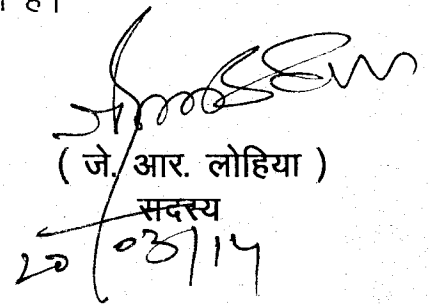 है।
( जे. आर. लोहिया )
सदस्य
20/03/14